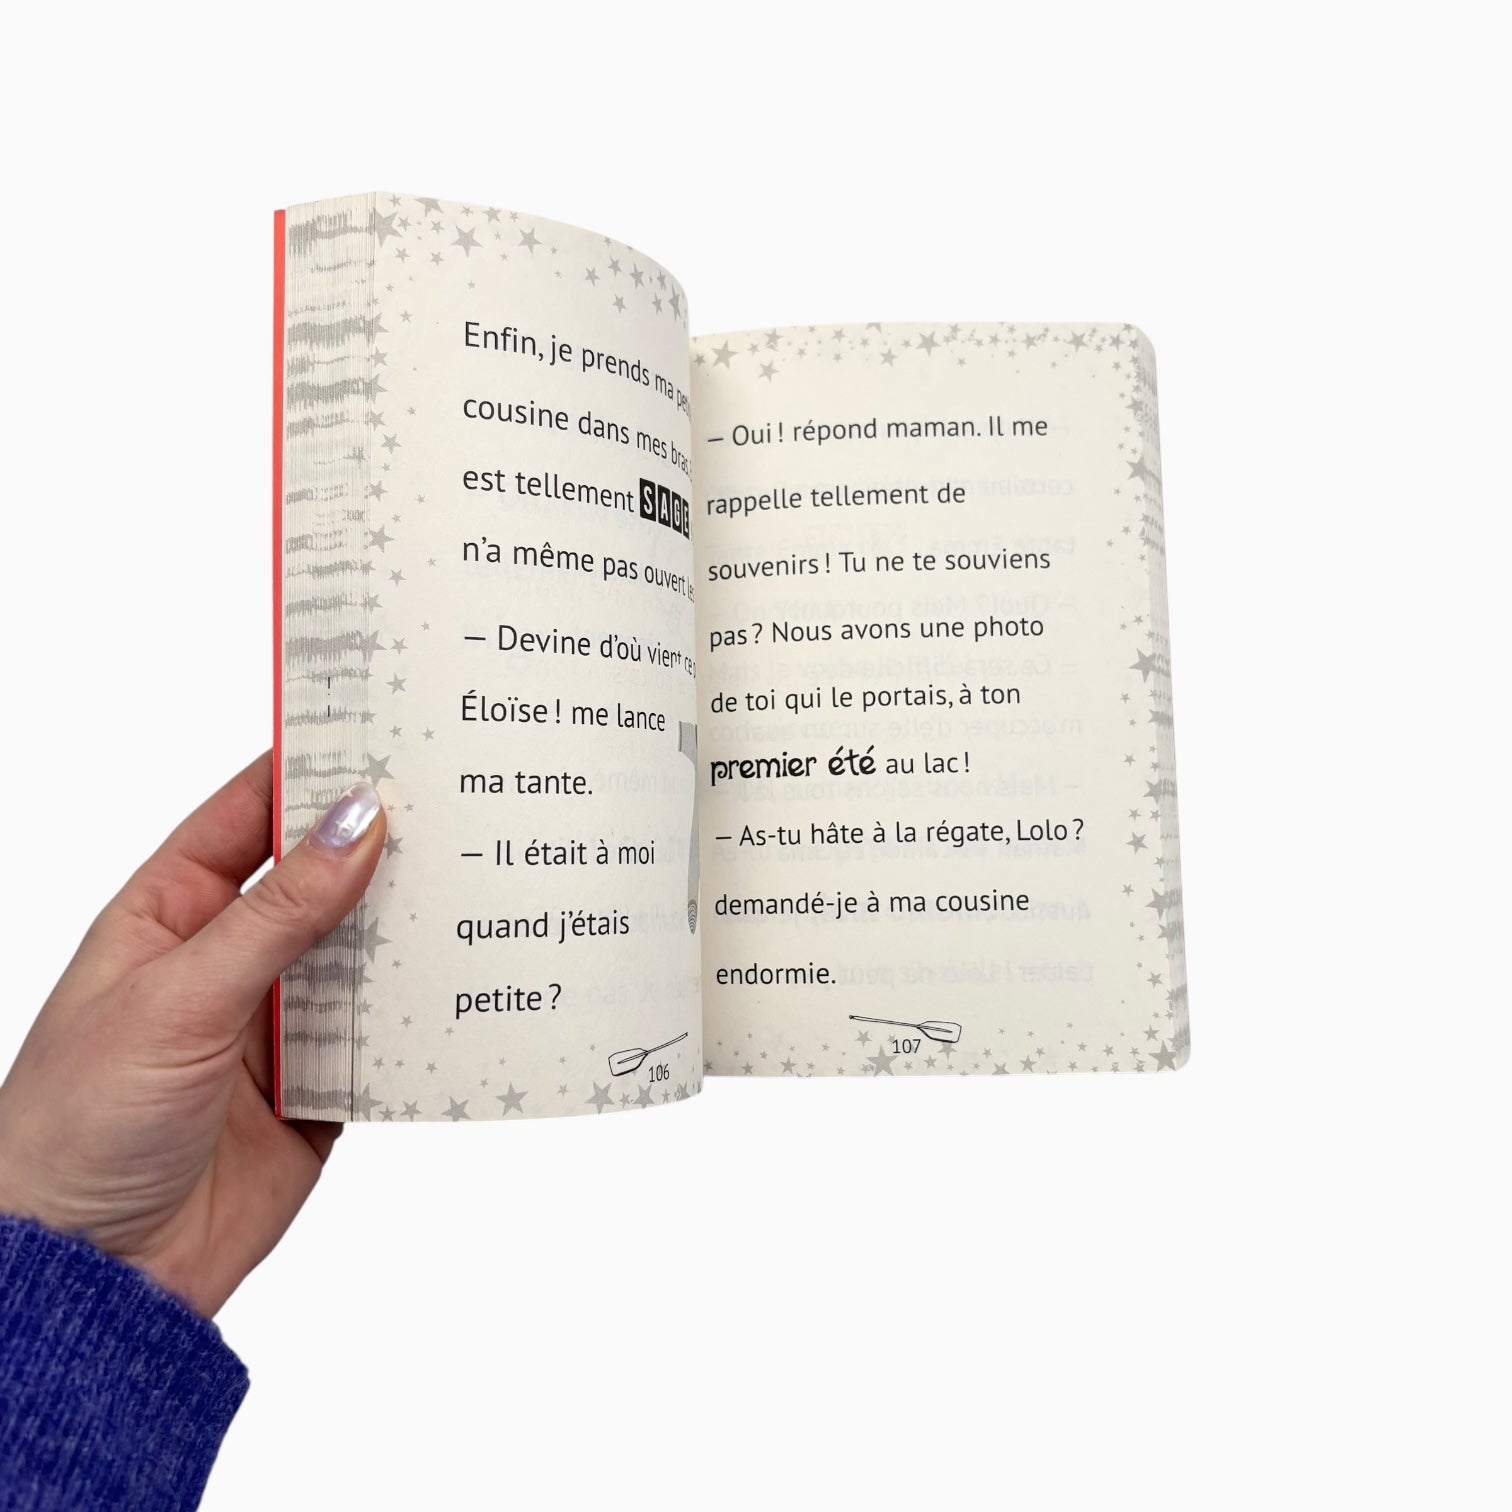 Enfin, je prends ma
cousine dans mes bras
est tellement SAGE
n'a même pas ouvert
— Devine d'où vient ce
Éloïse ! me lance
ma tante.
— Il était à moi
quand j'étais
petite ?
106
— Oui ! répond maman. Il me
rappelle tellement de
souvenirs ! Tu ne te souviens
pas ? Nous avons une photo
de toi qui le portais, à ton
premier été au lac !
— As-tu hâte à la régate, Lolo ?
demandé-je à ma cousine
endormie.
107